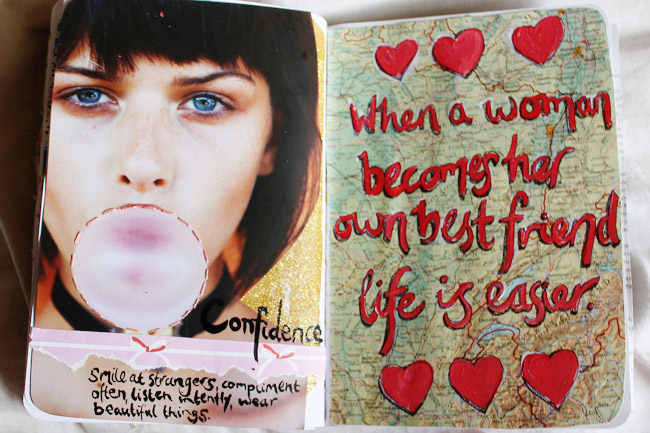 Confidence
Smile at strangers, compliment
often, listen intently, wear
beautiful things.
When a woman
becomes her
own best friend
life is easier.